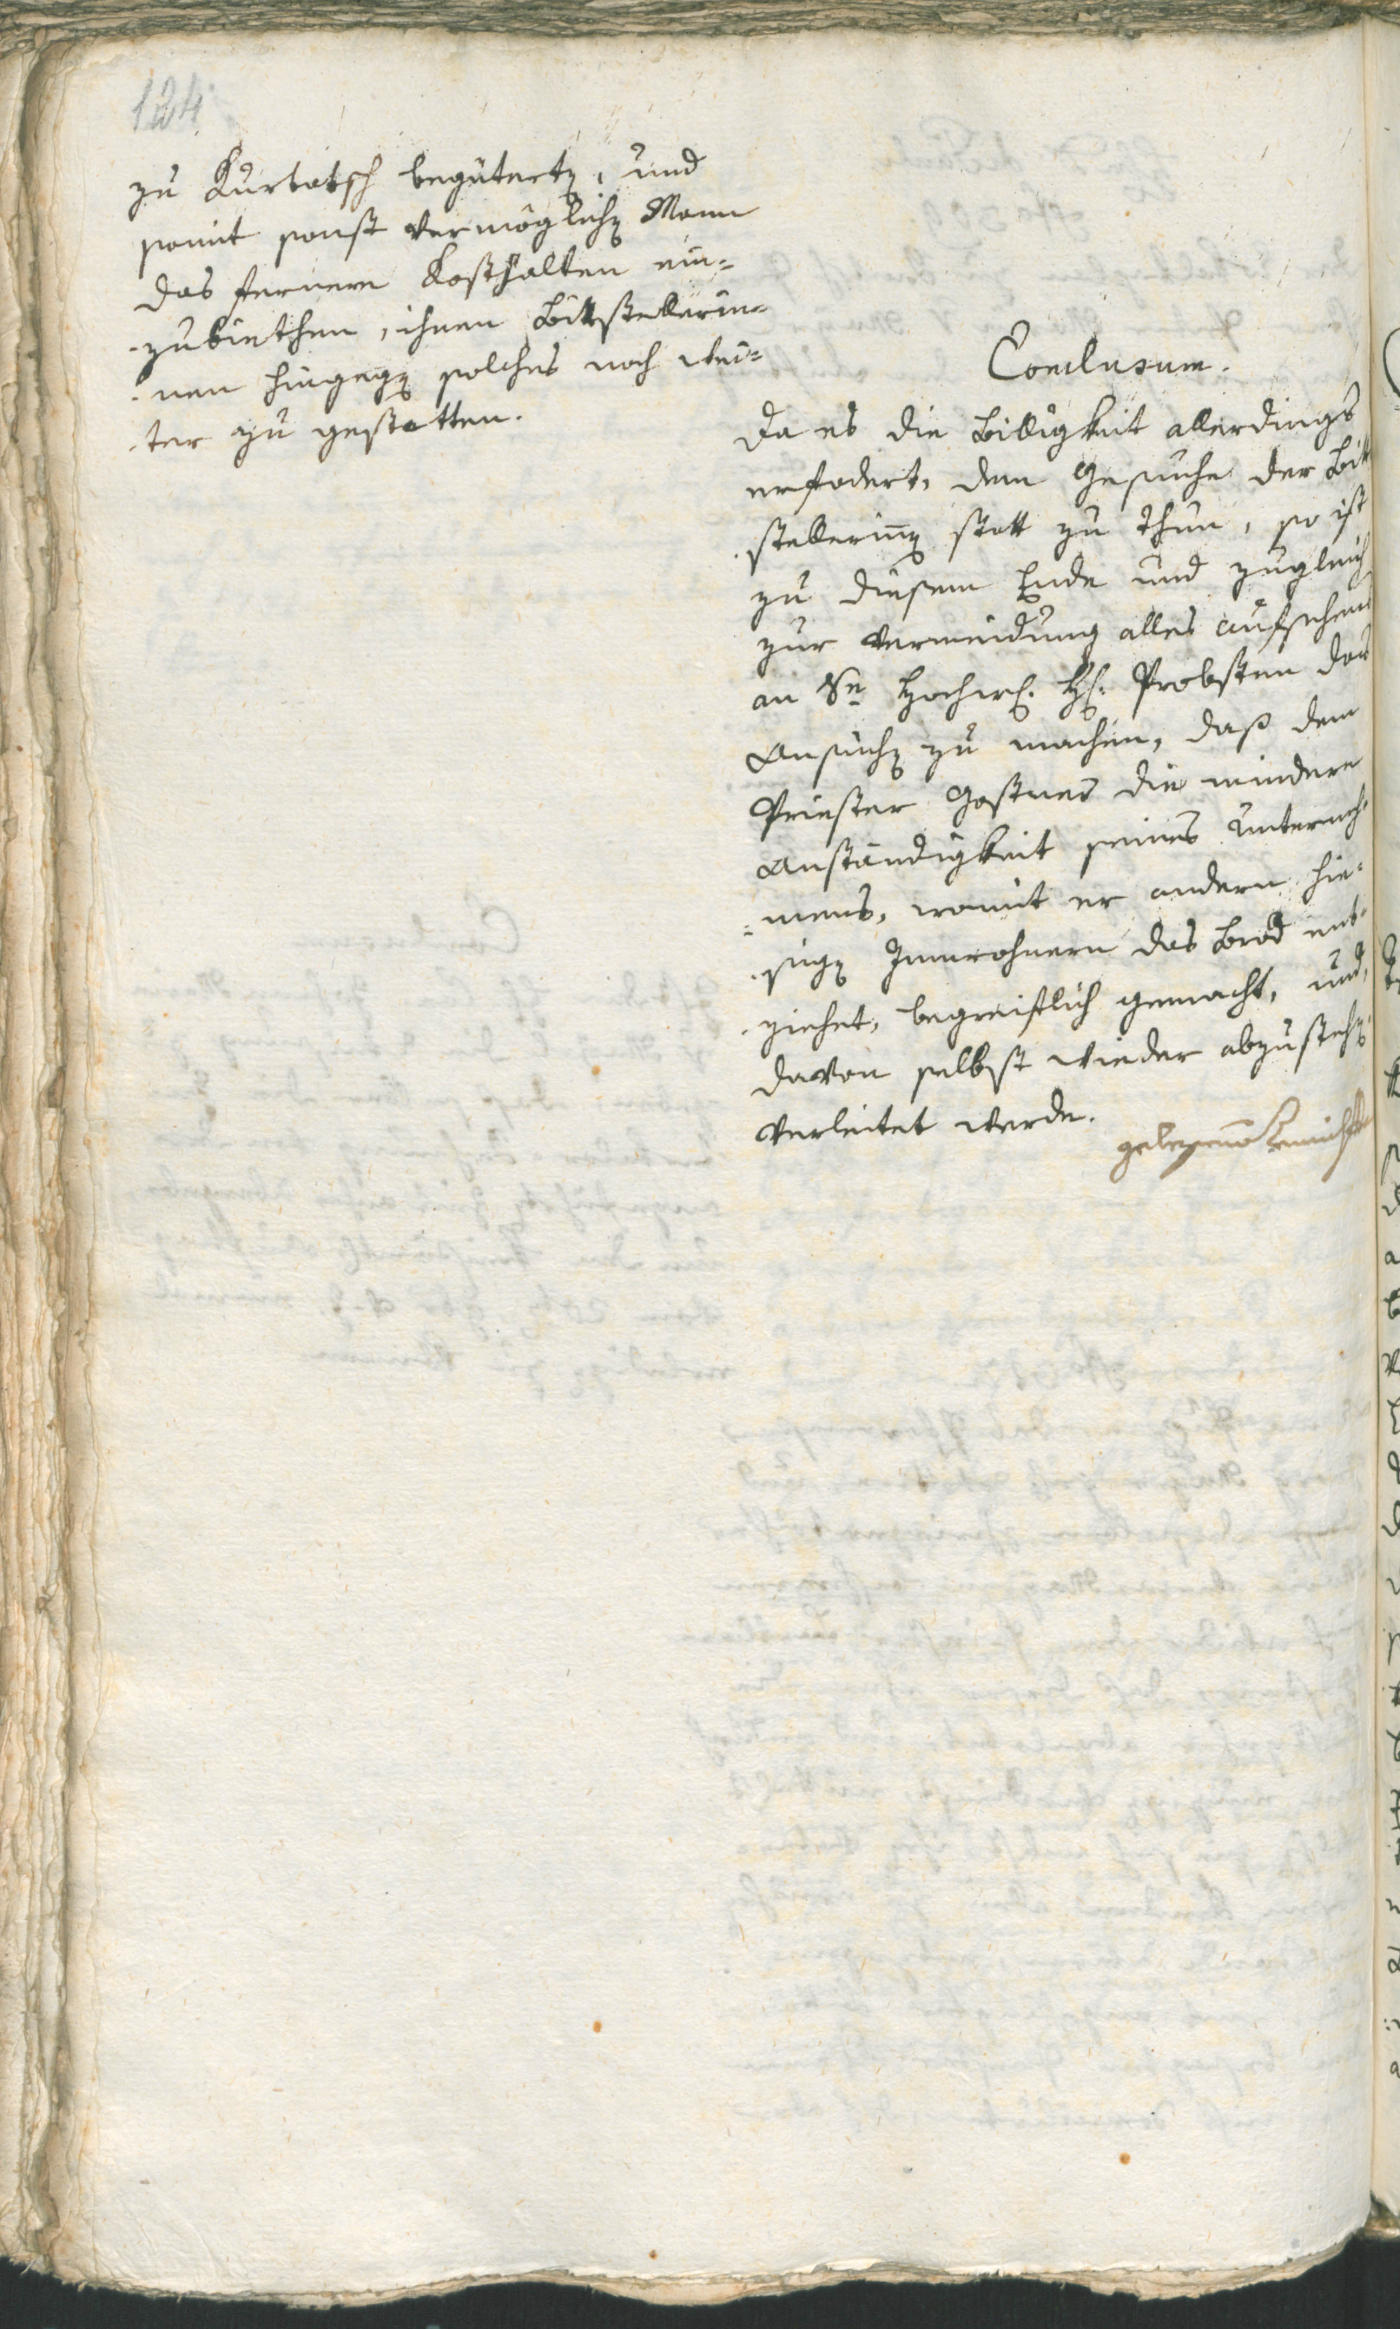 124
zu Kurtatsch begüterten, und
somit sonst vermöglichen Mann
das fernere Kosthalten ein-
zubiethen, ihnen Bittstellerin-
nen hingegen solches noch wei-
ter zu gestatten.
Conclusum.
Da es die Billigkeit allerdings
erfodert, dem Gesuche der Bitt
stellerinnen statt zu thun, so ist
zu diesem Ende und zugleich
zur Vermeidung alles Aufsehens
an Se Hochw. H. Probsten das
Ansuchen zu machen, daß dem
Priester Gostner die mindere
Anständigkeit seines Unterneh-
mens, womit er andern hie-
sigen Innwohnern das Brod ent-
ziehet, begreiflich gemacht, und
davon selbst wieder abzustehen
verleitet werde.
gelesen